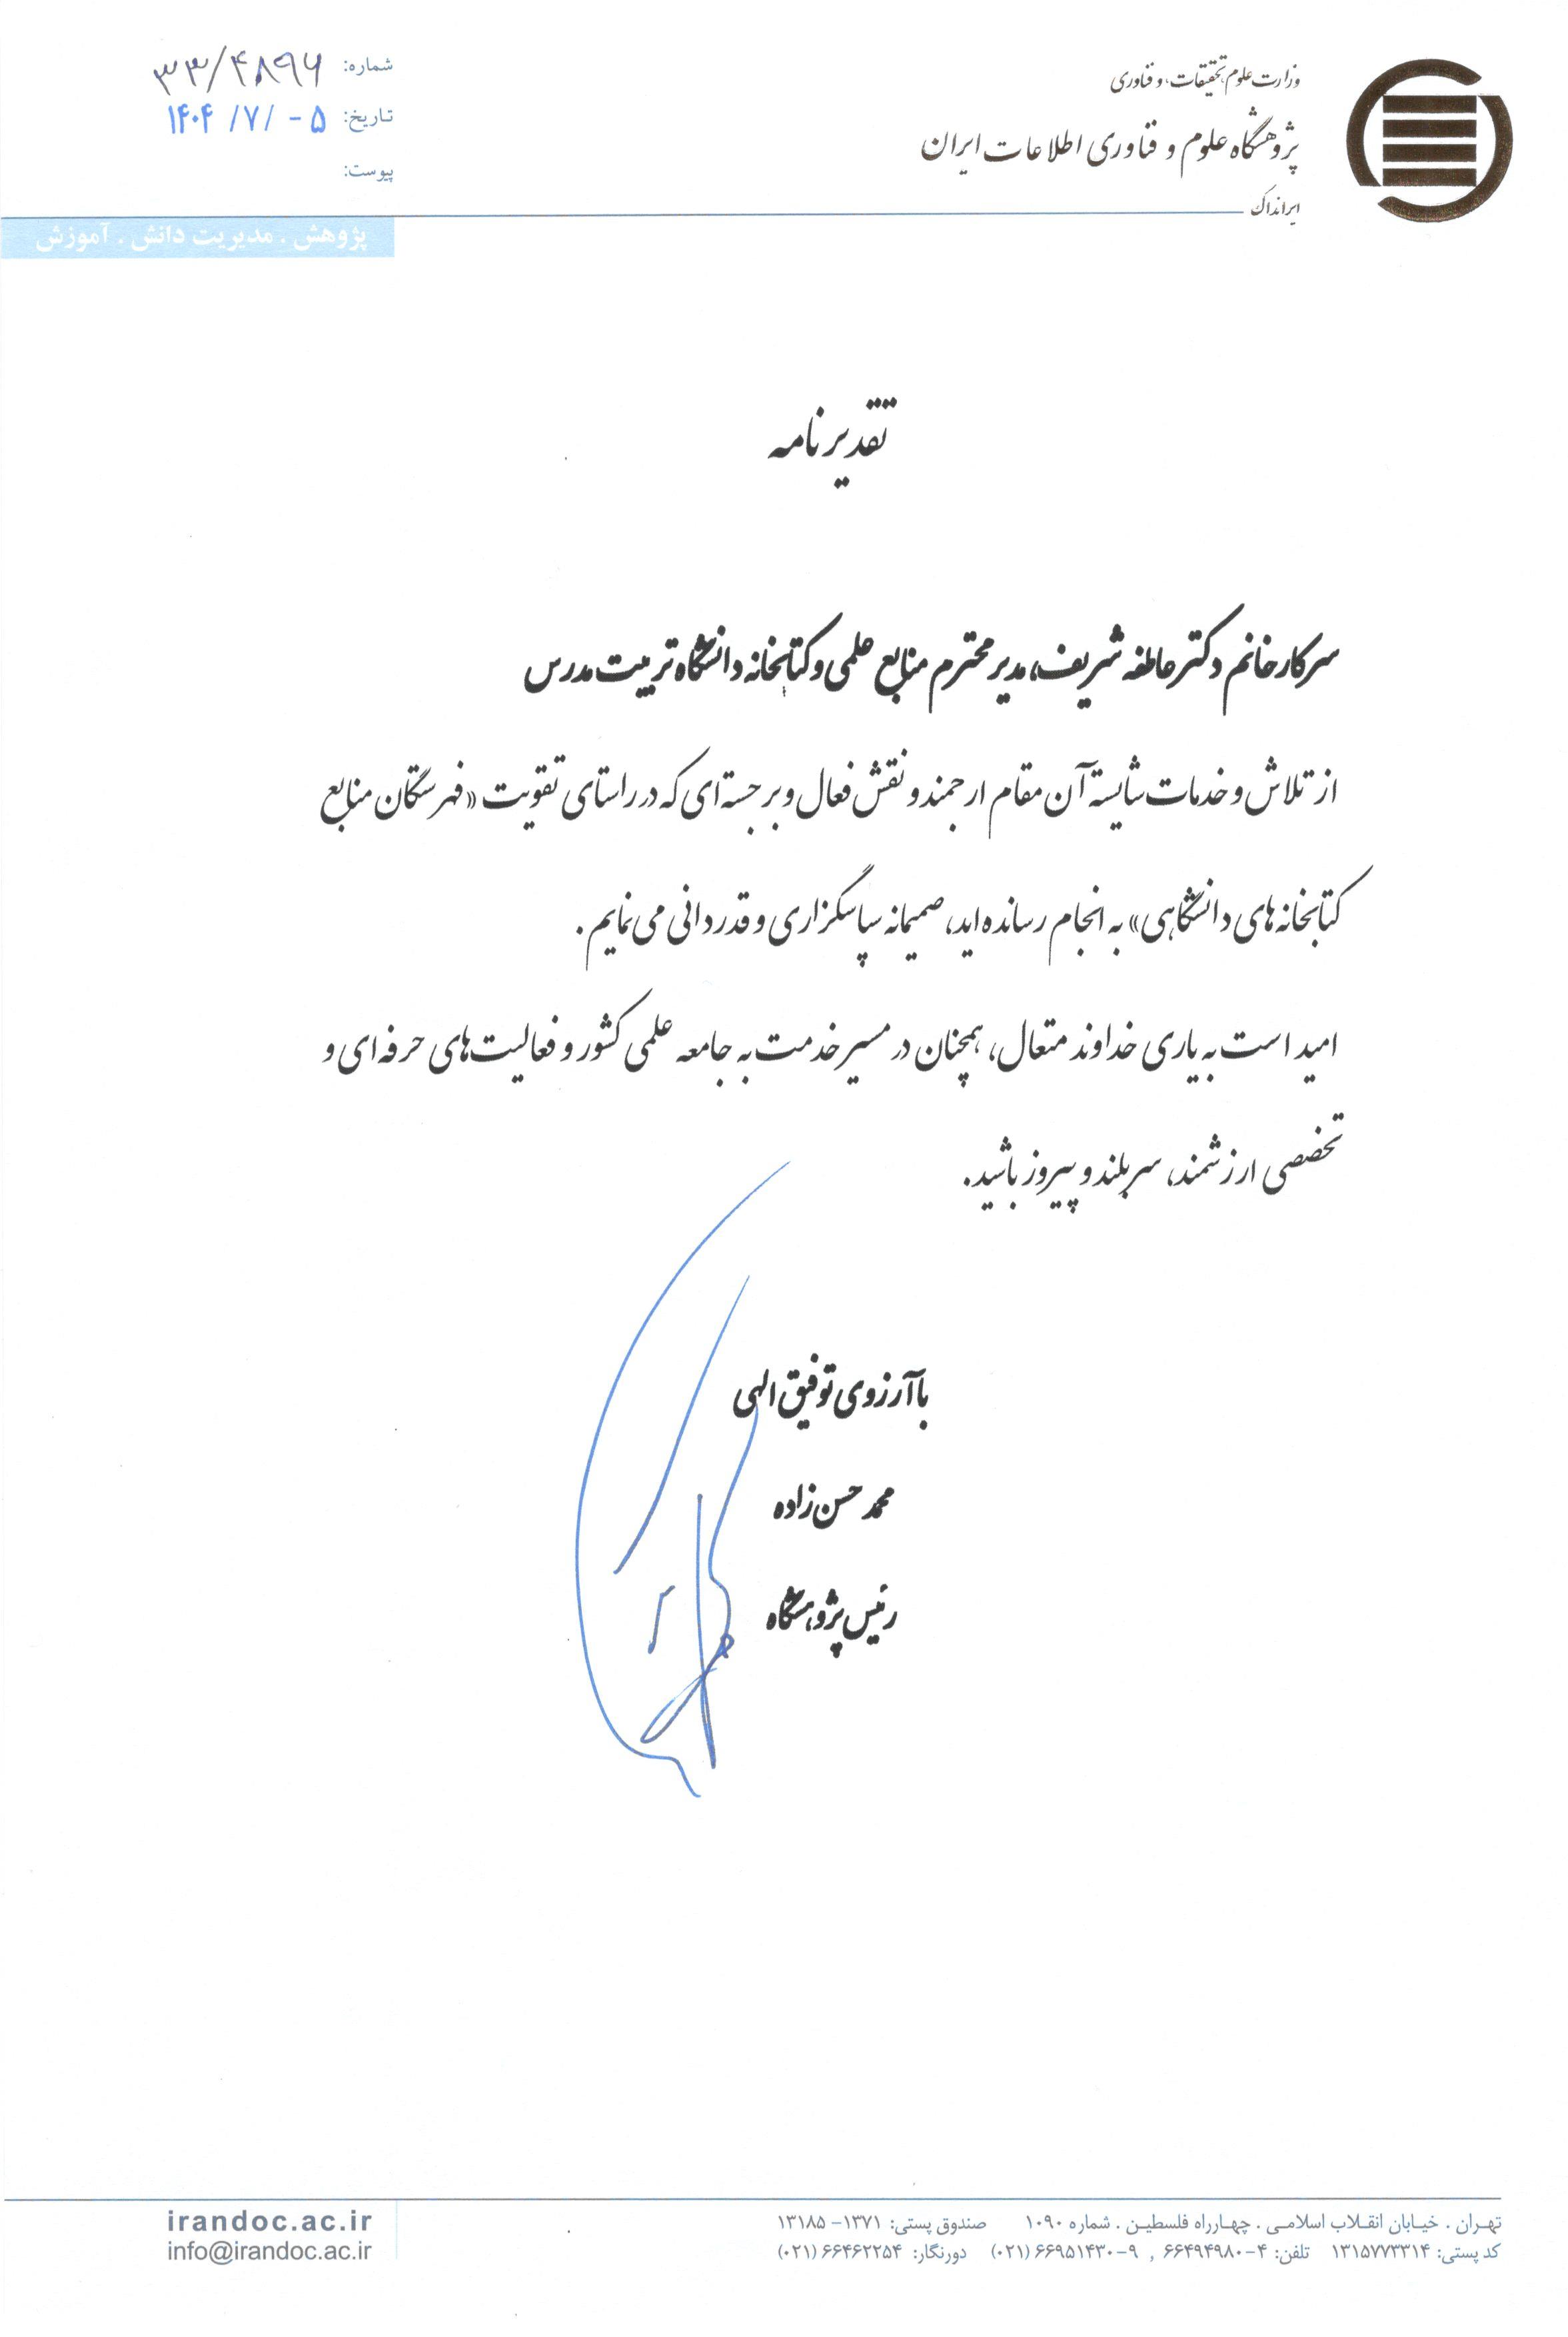 وزارت علوم، تحقیقات، و فناوری
پژوهشگاه علوم و فناوری اطلاعات ایران
ایرانداک
شماره: ۳۳/۴۸۹۶
تاریخ: ۵ - /۷ /۱۴۰۴
پیوست:
پژوهش . مدیریت دانش . آموزش
تقدیرنامه
سرکار خانم دکتر عاطفه شریف، مدیر محترم منابع علمی و کتابخانه دانشگاه تربیت مدرس
از تلاش و خدمات شایسته آن مقام ارجمند و نقش فعال و برجسته‌ای که در راستای تقویت «فهرستگان منابع
کتابخانه‌های دانشگاهی» به انجام رسانده‌اید، صمیمانه سپاسگزاری و قدردانی می‌نمایم.
امید است به یاری خداوند متعال، همچنان در مسیر خدمت به جامعه علمی کشور و فعالیت‌های حرفه‌ای و
تخصصی ارزشمند، سربلند و پیروز باشید.
با آرزوی توفیق الهی
محمد حسن‌زاده
رئیس پژوهشگاه
تهران . خیابان انقلاب اسلامی . چهارراه فلسطین . شماره ۱۰۹۰ صندوق پستی: ۱۳۷۱- ۱۳۱۸۵
کد پستی: ۱۳۱۵۷۷۳۳۱۴ تلفن: ۴-۶۶۴۹۴۹۸۰ , ۹-۶۶۹۵۱۴۳۰ (۰۲۱) دورنگار: ۶۶۴۶۲۲۵۴ (۰۲۱)
irandoc.ac.ir
info@irandoc.ac.ir